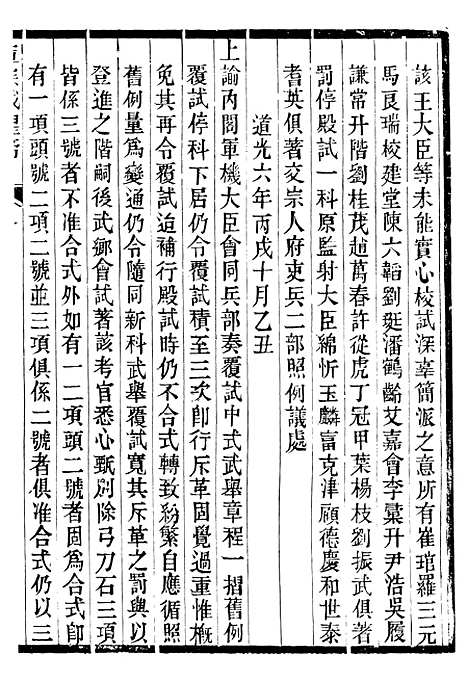 該王大臣等未能實心校試深辜簡派之意所有崔琯羅三元
馬良瑞校建堂陳六韜劉珽潘鶴齡艾嘉會李彙升尹浩吳履
謙常升階劉桂茂趙萬春許從虎丁冠甲葉楊枝劉振武俱著
罰停殿試一科原監射大臣綿忻玉麟富克津顧德慶和世泰
耆英俱著交宗人府吏兵二部照例議處
道光六年丙戌十月乙丑
上諭內閣軍機大臣會同兵部奏覆試中式武舉章程一摺舊例
覆試停科下居仍令覆試積至三次卽行斥革固覺過重惟槪
免其再令覆試迨補行殿試時仍不合式轉致紛繁自應循照
舊例量爲變通仍令隨同新科武舉覆試寬其斥革之罰與以
登進之階嗣後武鄉會試著該考官悉心甄別除弓刀石三項
皆係三號者不准合式外如有一二項頭二號者固爲合式卽
有一項頭號二項二號並三項俱係二號者俱准合式仍以三